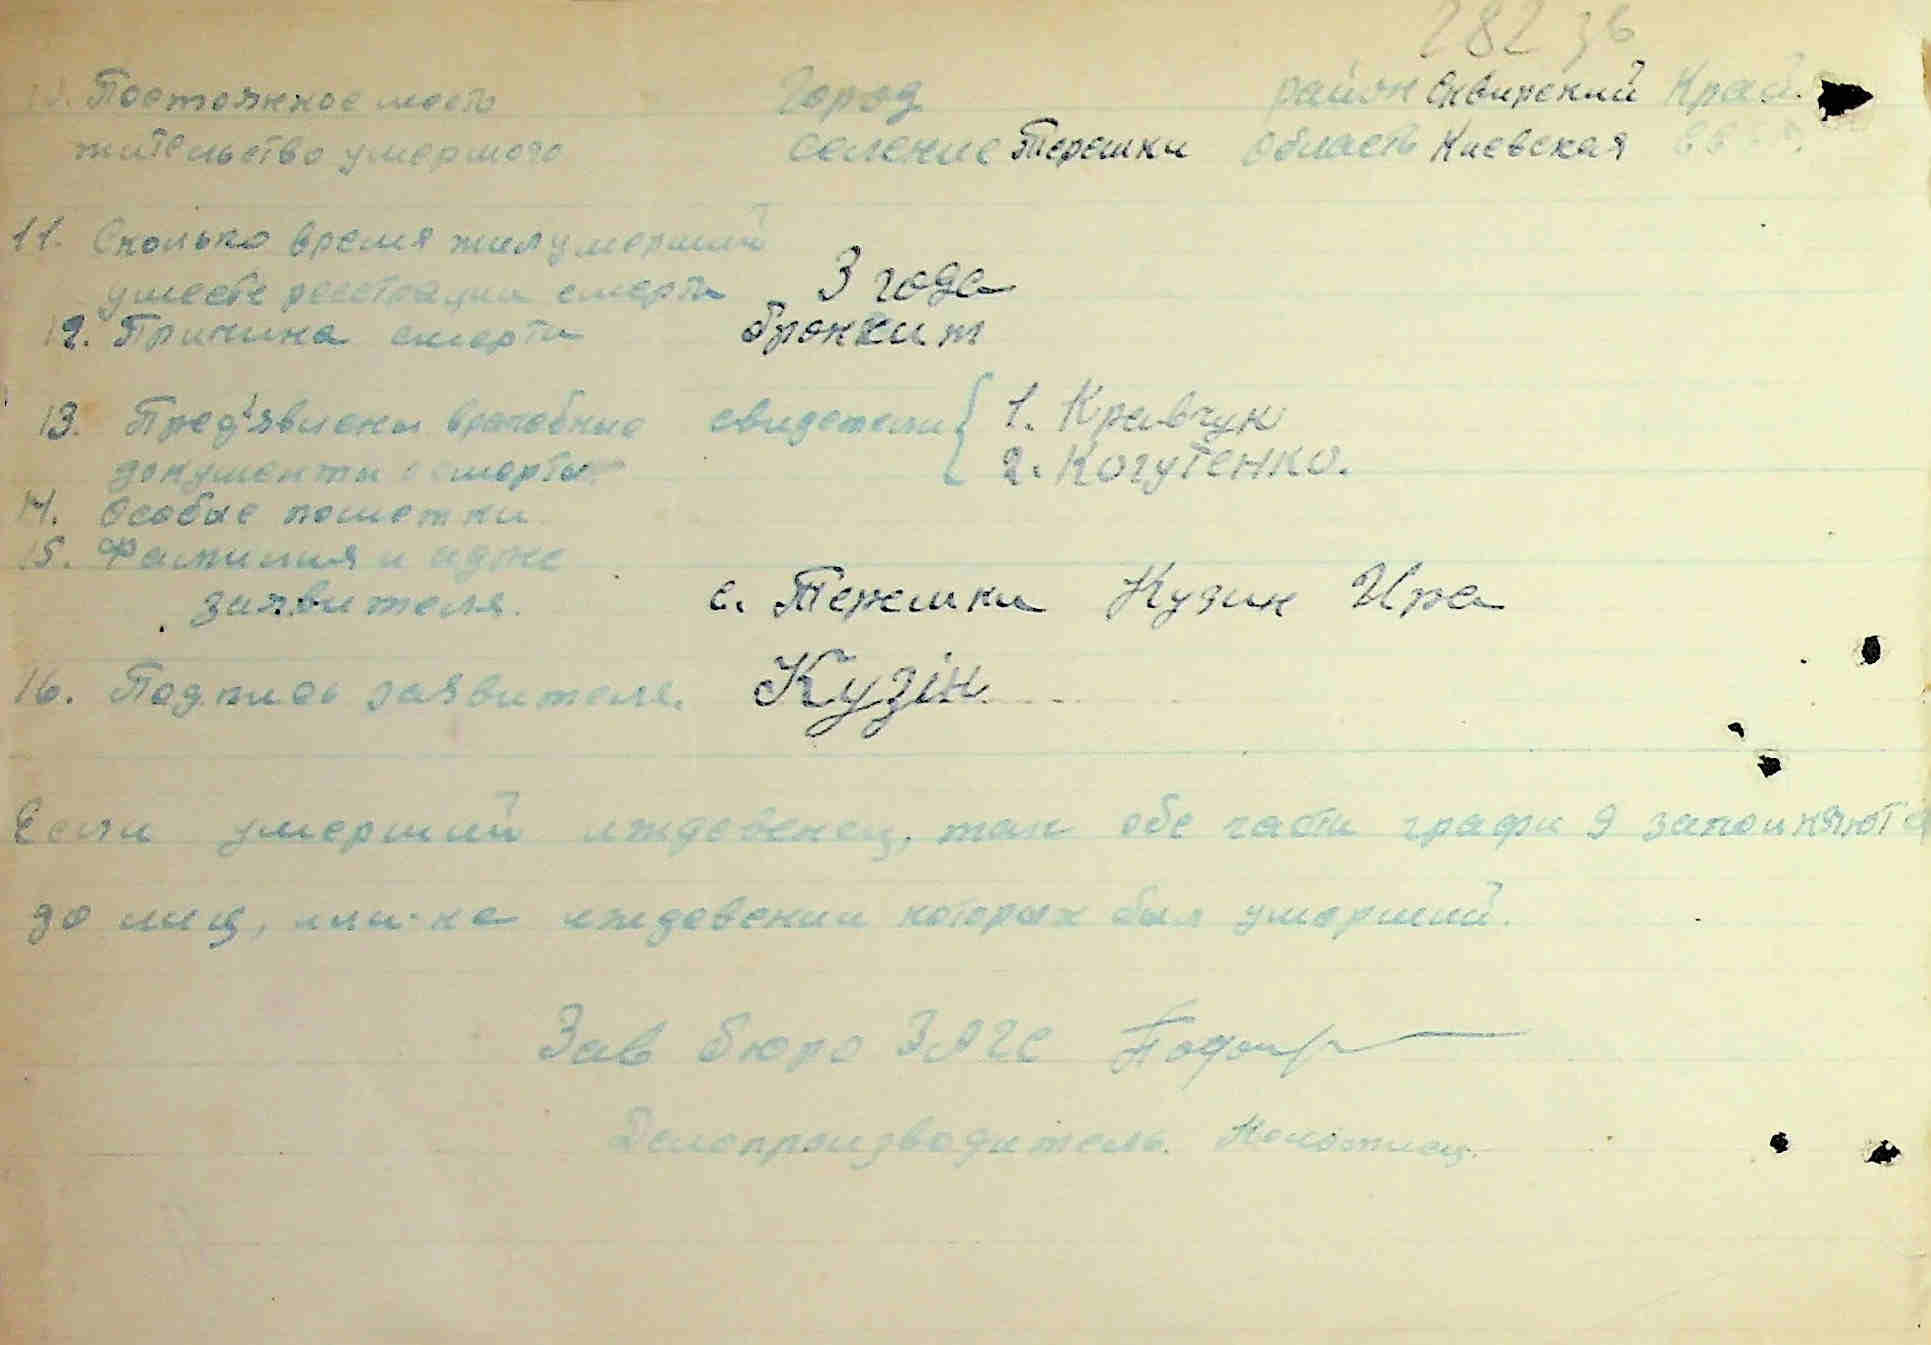 282 зв
10. Постоянное место Город район Сквирский Край
жительство умершого селение Терешки область Киевская ССР
11. Сколько время жил умерший
у месте регстрации смерти 3 года
12. Причина смерти бронхит
13. Пред'явлены врачебные свидетели { 1. Кравчук
документы о смерти 2. Когутенко.
14. Особые пометки
15. Фамилия и адрес
заявителя. с. Терешки Кузин Ира
16. Подпись заявителя. Кузін
Если умерший иждевенец, так обе части графи 9 заполняются
до лиц, или на иждевении которых был умерший.
Зав бюро ЗАГС
Делопроизводитель.